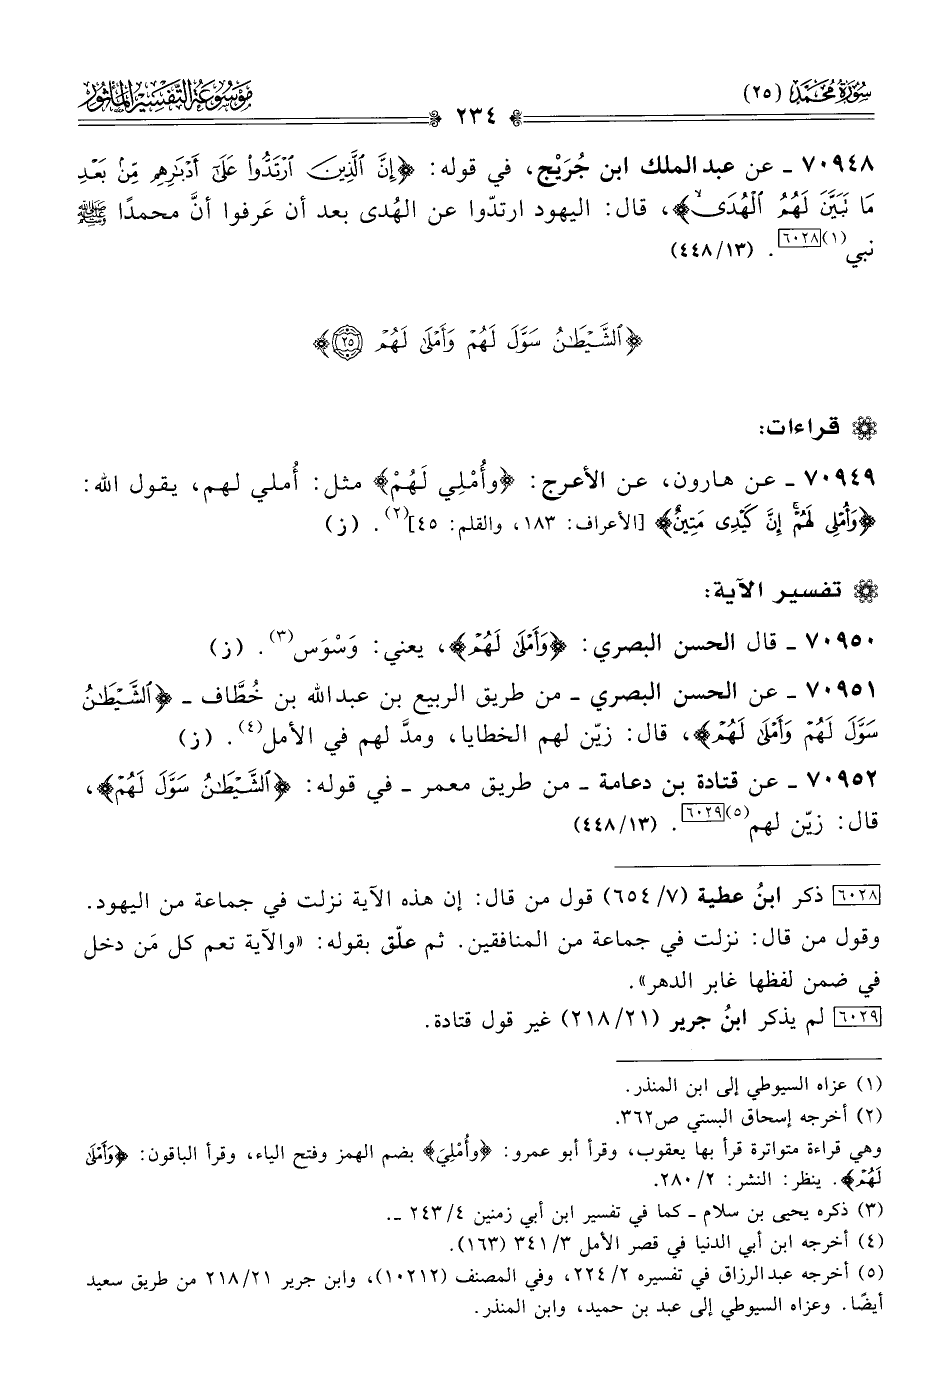 سُورَةُ مُحَمَّد (٢٥)
٢٣٤
مَوْسُوعَةُ التَّفْسِيرِ المَأْثُور
٧٠٩٤٨ ـ عن عبد الملك ابن جُرَيْج، في قوله: ﴿إِنَّ ٱلَّذِينَ ٱرْتَدُّوا۟ عَلَىٰٓ أَدْبَـٰرِهِم مِّنۢ بَعْدِ
مَا تَبَيَّنَ لَهُمُ ٱلْهُدَىۙ﴾، قال: اليهود ارتدّوا عن الهُدى بعد أن عَرفوا أنَّ محمدًا ﷺ
نبي(١)[٦٠٢٨]. (٤٤٨/١٣)
﴿ٱلشَّيْطَـٰنُ سَوَّلَ لَهُمْ وَأَمْلَىٰ لَهُمْ ٢٥﴾
قراءات:
٧٠٩٤٩ ـ عن هارون، عن الأعرج: ﴿وأُمْلِي لَهُمْ﴾ مثل: أُملي لهم، يقول الله:
﴿وَأُمْلِى لَهُمْۚ إِنَّ كَيْدِى مَتِينٌ﴾ [الأعراف: ١٨٣، والقلم: ٤٥](٢). (ز)
تفسير الآية:
٧٠٩٥٠ ـ قال الحسن البصري: ﴿وَأَمْلَىٰ لَهُمْ﴾، يعني: وَسْوَس(٣). (ز)
٧٠٩٥١ ـ عن الحسن البصري ـ من طريق الربيع بن عبدالله بن خُطَّاف ـ ﴿ٱلشَّيْطَـٰنُ
سَوَّلَ لَهُمْ وَأَمْلَىٰ لَهُمْ﴾، قال: زيّن لهم الخطايا، ومدَّ لهم في الأمل(٤). (ز)
٧٠٩٥٢ ـ عن قتادة بن دعامة ـ من طريق معمر ـ في قوله: ﴿ٱلشَّيْطَـٰنُ سَوَّلَ لَهُمْ﴾،
قال: زيّن لهم(٥)[٦٠٢٩]. (٤٤٨/١٣)
[٦٠٢٨] ذكر ابنُ عطية (٧/ ٦٥٤) قول من قال: إن هذه الآية نزلت في جماعة من اليهود.
وقول من قال: نزلت في جماعة من المنافقين. ثم علّق بقوله: «والآية تعم كل مَن دخل
في ضمن لفظها غابر الدهر».
[٦٠٢٩] لم يذكر ابنُ جرير (٢١/ ٢١٨) غير قول قتادة.
(١) عزاه السيوطي إلى ابن المنذر.
(٢) أخرجه إسحاق البستي ص٣٦٢.
وهي قراءة متواترة قرأ بها يعقوب، وقرأ أبو عمرو: ﴿وأُمْلِيَ﴾ بضم الهمز وفتح الياء، وقرأ الباقون: ﴿وَأَمْلَىٰ
لَهُمْ﴾. ينظر: النشر: ٢/ ٢٨٠.
(٣) ذكره يحيى بن سلام ـ كما في تفسير ابن أبي زمنين ٤/ ٢٤٣ ـ.
(٤) أخرجه ابن أبي الدنيا في قصر الأمل ٣/ ٣٤١ (١٦٣).
(٥) أخرجه عبد الرزاق في تفسيره ٢/ ٢٢٤، وفي المصنف (١٠٢١٢)، وابن جرير ٢١/ ٢١٨ من طريق سعيد
أيضًا. وعزاه السيوطي إلى عبد بن حميد، وابن المنذر.